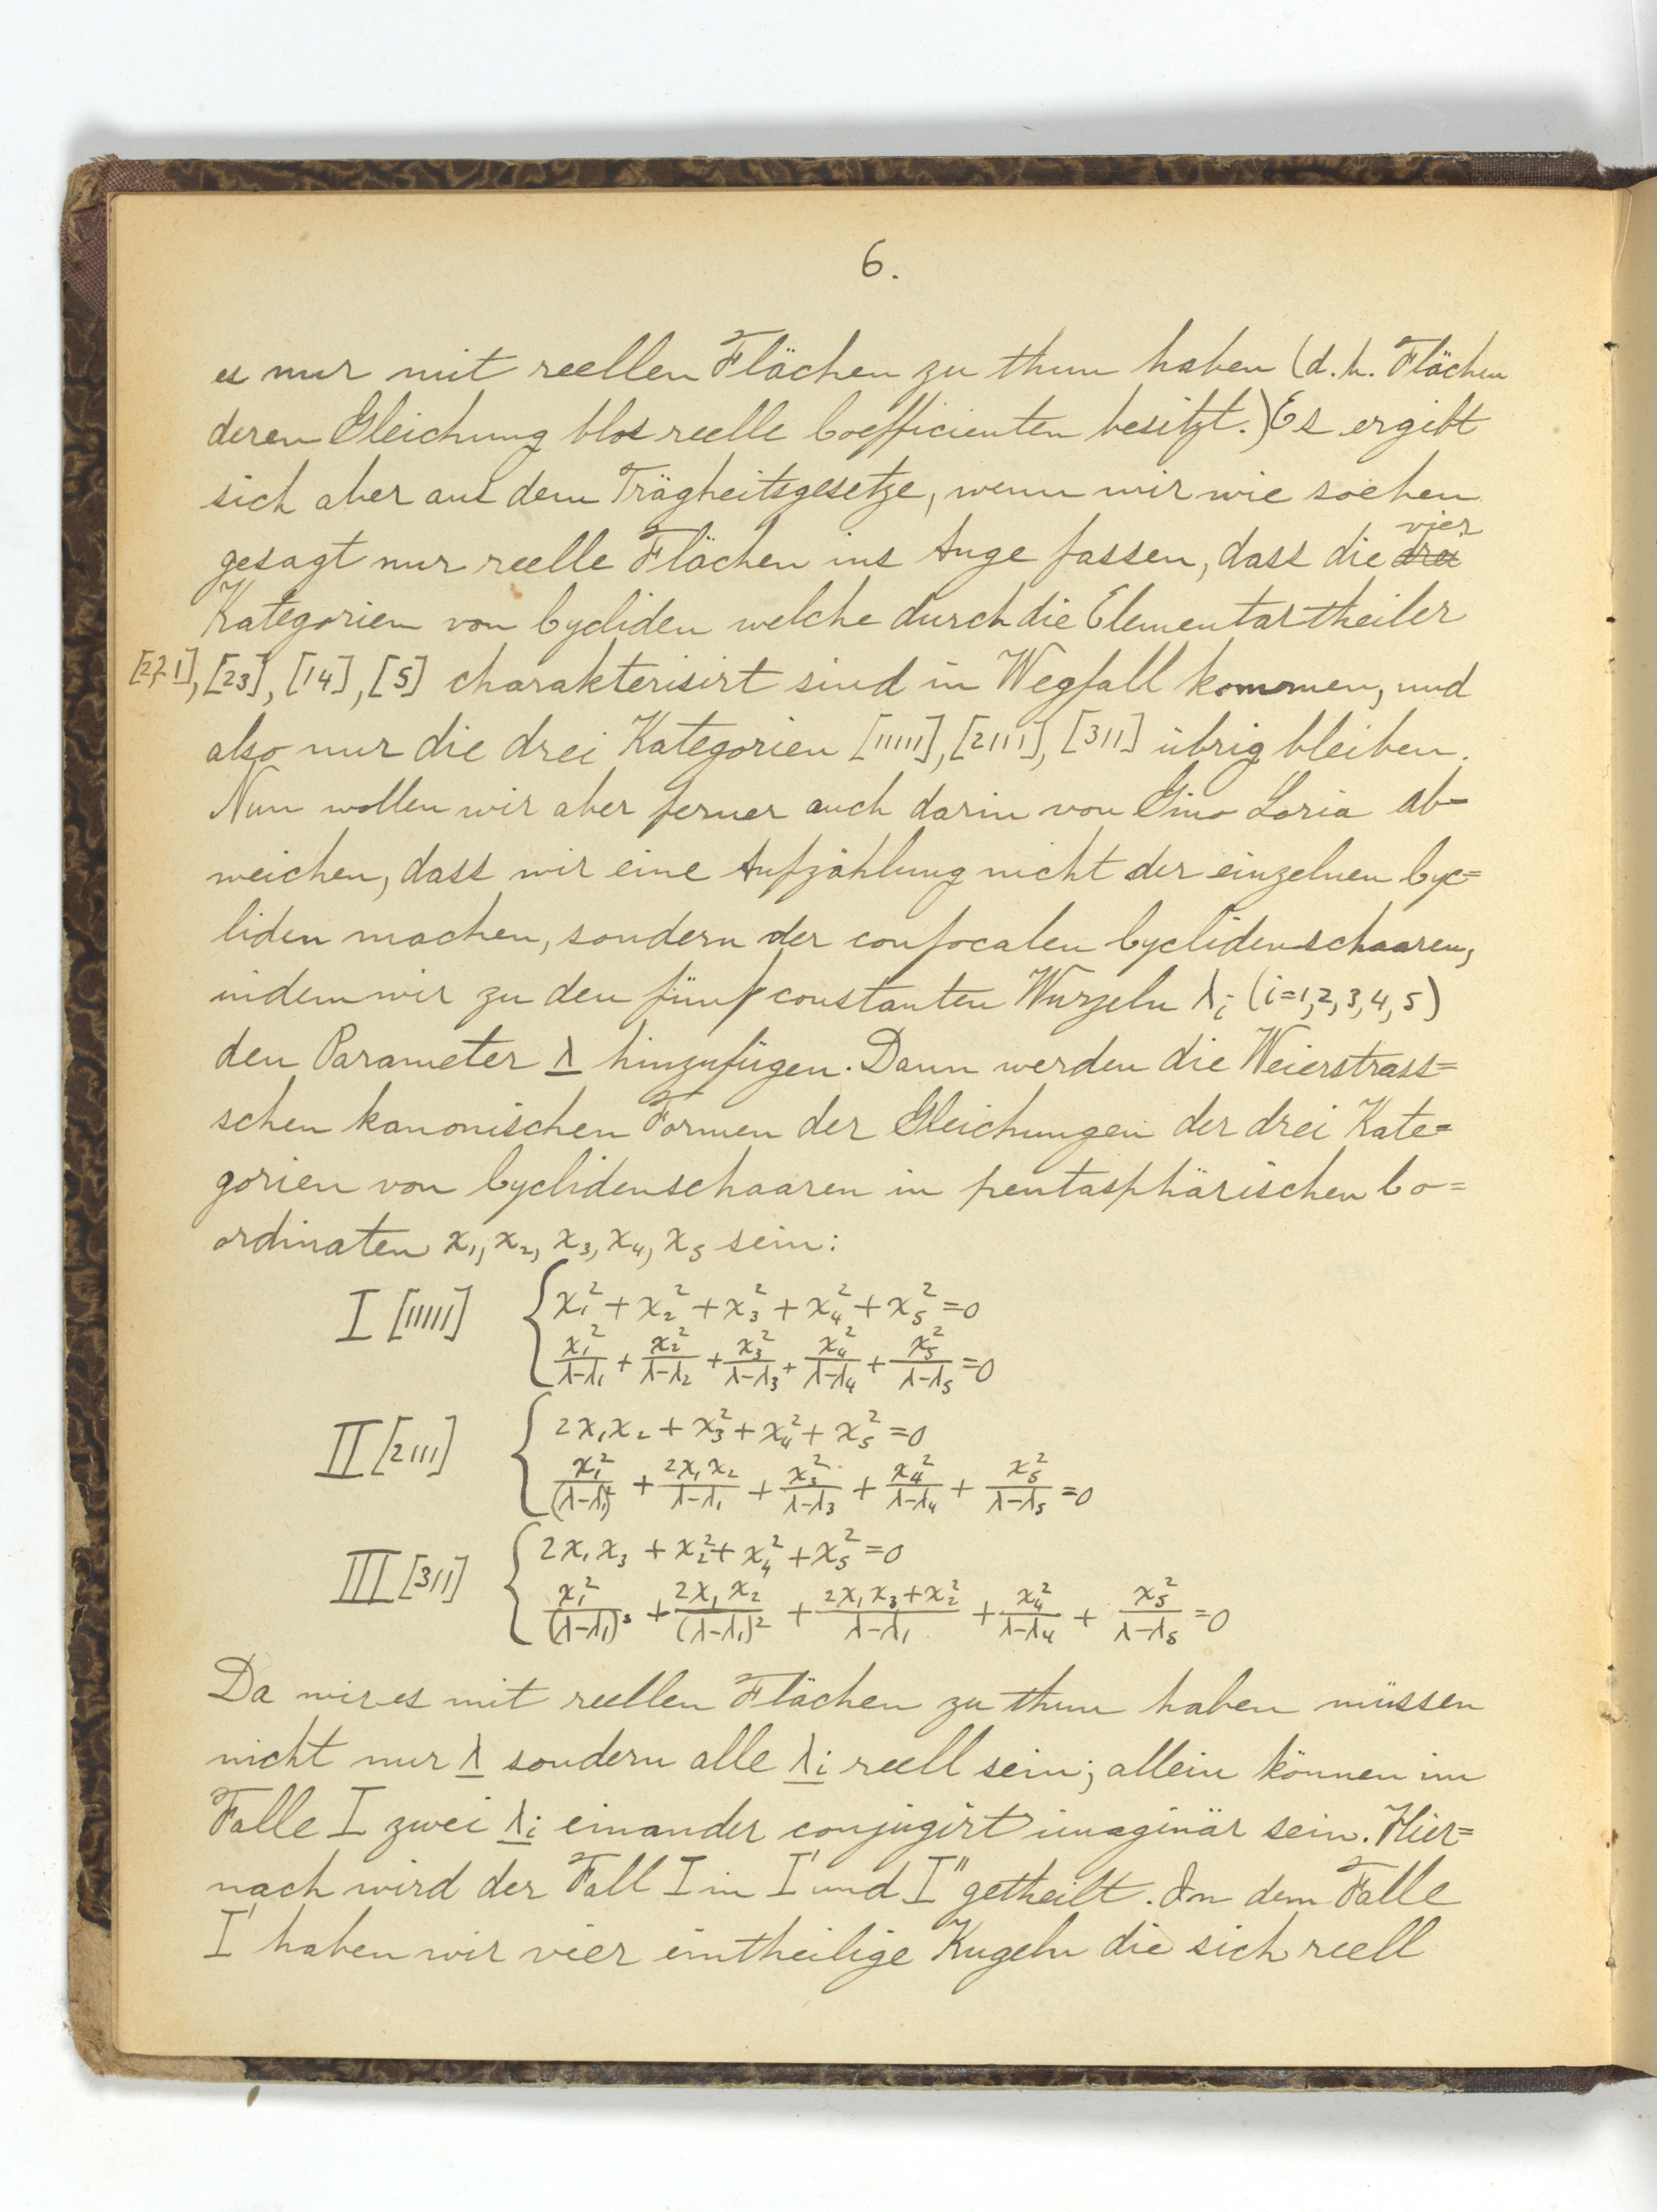 6.
es nur mit reellen Flächen zu thun haben (d.h. Flächen
deren Gleichung blos reelle Coefficienten besitzt.) Es ergibt
sich aber aus dem Trägheitsgesetze, wenn wir wie soeben
gesagt nur reelle Flächen ins Auge fassen, dass die ~~drei~~ vier
Kategorien von Cycliden welche durch die Elementartheiler
[221], [23], [14], [5] charakterisirt sind in Wegfall kommen, und
also nur die drei Kategorien [11111], [2111], [311] übrig bleiben.
Nun wollen wir aber ferner auch darin von Gino Loria ab=
weichen, dass wir eine Aufzählung nicht der einzelnen Cyc=
liden machen, sondern der confocalen Cyclidenschaaren,
indem wir zu den fünf constanten Wurzeln λᵢ (i=1,2,3,4,5)
den Parameter λ hinzufügen. Dann werden die Weierstrass=
schen kanonischen Formen der Gleichungen der drei Kate=
gorien von Cyclidenschaaren in pentasphärischen Co=
ordinaten x₁, x₂, x₃, x₄, x₅ sein:
I [11111] { x₁² + x₂² + x₃² + x₄² + x₅² = 0
x₁²/(λ-λ₁) + x₂²/(λ-λ₂) + x₃²/(λ-λ₃) + x₄²/(λ-λ₄) + x₅²/(λ-λ₅) = 0
II [2111] { 2x₁x₂ + x₃² + x₄² + x₅² = 0
x₁²/(λ-λ₁)² + 2x₁x₂/(λ-λ₁) + x₃²/(λ-λ₃) + x₄²/(λ-λ₄) + x₅²/(λ-λ₅) = 0
III [311] { 2x₁x₃ + x₂² + x₄² + x₅² = 0
x₁²/(λ-λ₁)³ + 2x₁x₂/(λ-λ₁)² + (2x₁x₃+x₂²)/(λ-λ₁) + x₄²/(λ-λ₄) + x₅²/(λ-λ₅) = 0
Da wir es mit reellen Flächen zu thun haben müssen
nicht nur λ sondern alle λᵢ reell sein; allein können im
Falle I zwei λᵢ einander conjugirt imaginär sein. Hier=
nach wird der Fall I in I' und I'' getheilt. In dem Falle
I' haben wir vier eintheilige Kugeln die sich reell